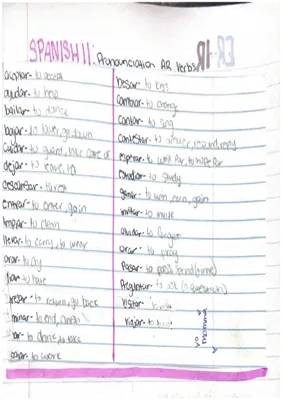 SPANISH 11: Pronounciation AR Verbs
aceptar- to accept
ayudar- to help
bailar- to dance
bajar- to lower, go down
cuidar- to guard, take care of
dejar- to leave, let
descansar- to rest
entrar- to enter, gain
limpiar- to clean
llevar- to carry, to wear
to cry
to have
to return, go back
minar- to end, finish
to drink, to take
to work
besar- to kiss
cambiar- to change
cantar- to sing
contestar- to answer, respond, reply
esperar- to wait for, to hope for
estudiar- to study
ganar- to win, earn, gain
invitar- to invite
olvidar- to forget
orar- to pray
Pasar- to pass, spend (time)
Preguntar- to ask (a question)
Visitar-
Viajar- to
yo